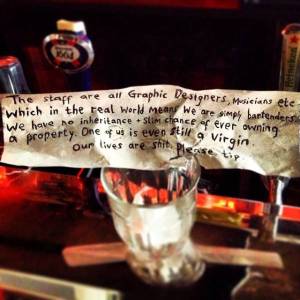 The staff are all Graphic Designers, Musicians etc
Which in the real World means We are simply bartenders
We have no inheritance + Slim chance of ever owning
a property. One of us is even still a Virgin
Our lives are shit. please tip.